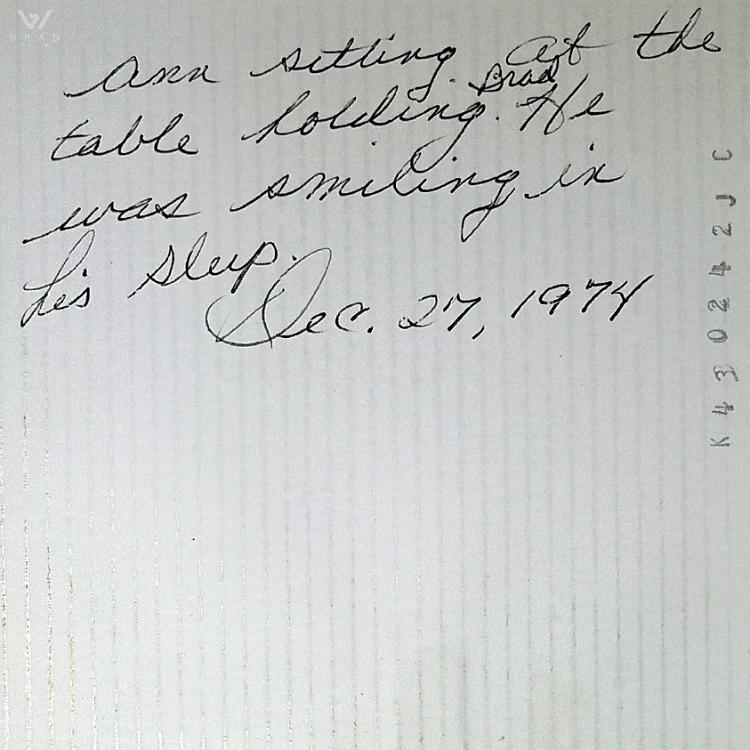 BRAD
Ann setting at the
table holding Brad. He
was smiling in
his sleep.
Dec. 27, 1974
K430242JC